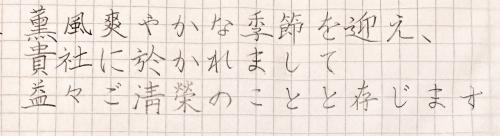 薫風爽やかな季節を迎え、
貴社に於かれまして
益々ご清榮のことと存じます